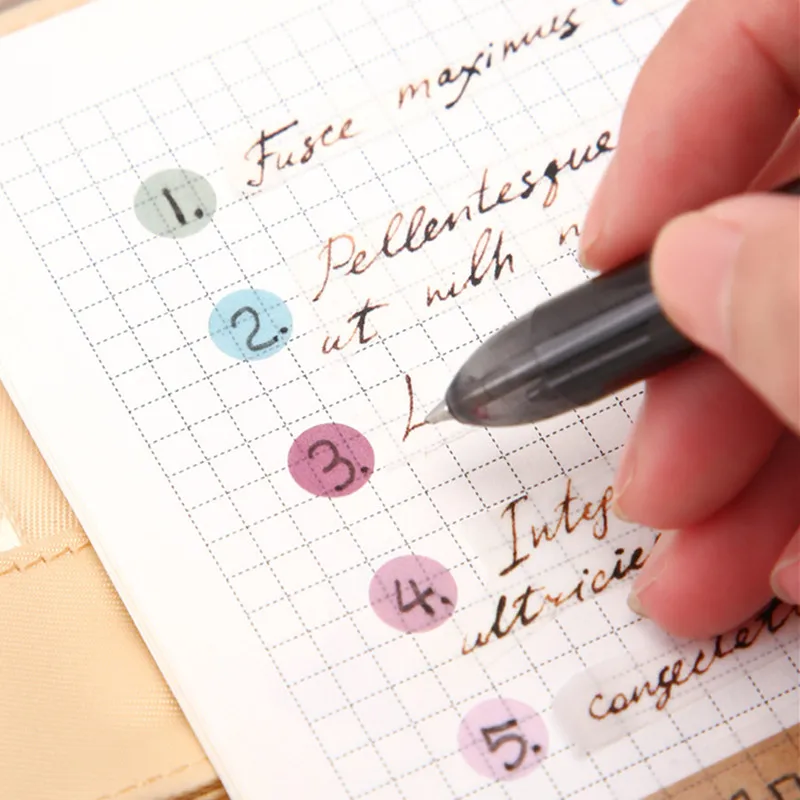 1. Fusce maximus
2. Pellentesque
ut nibh
3. L
4. Integ
ultricie
5. consectet